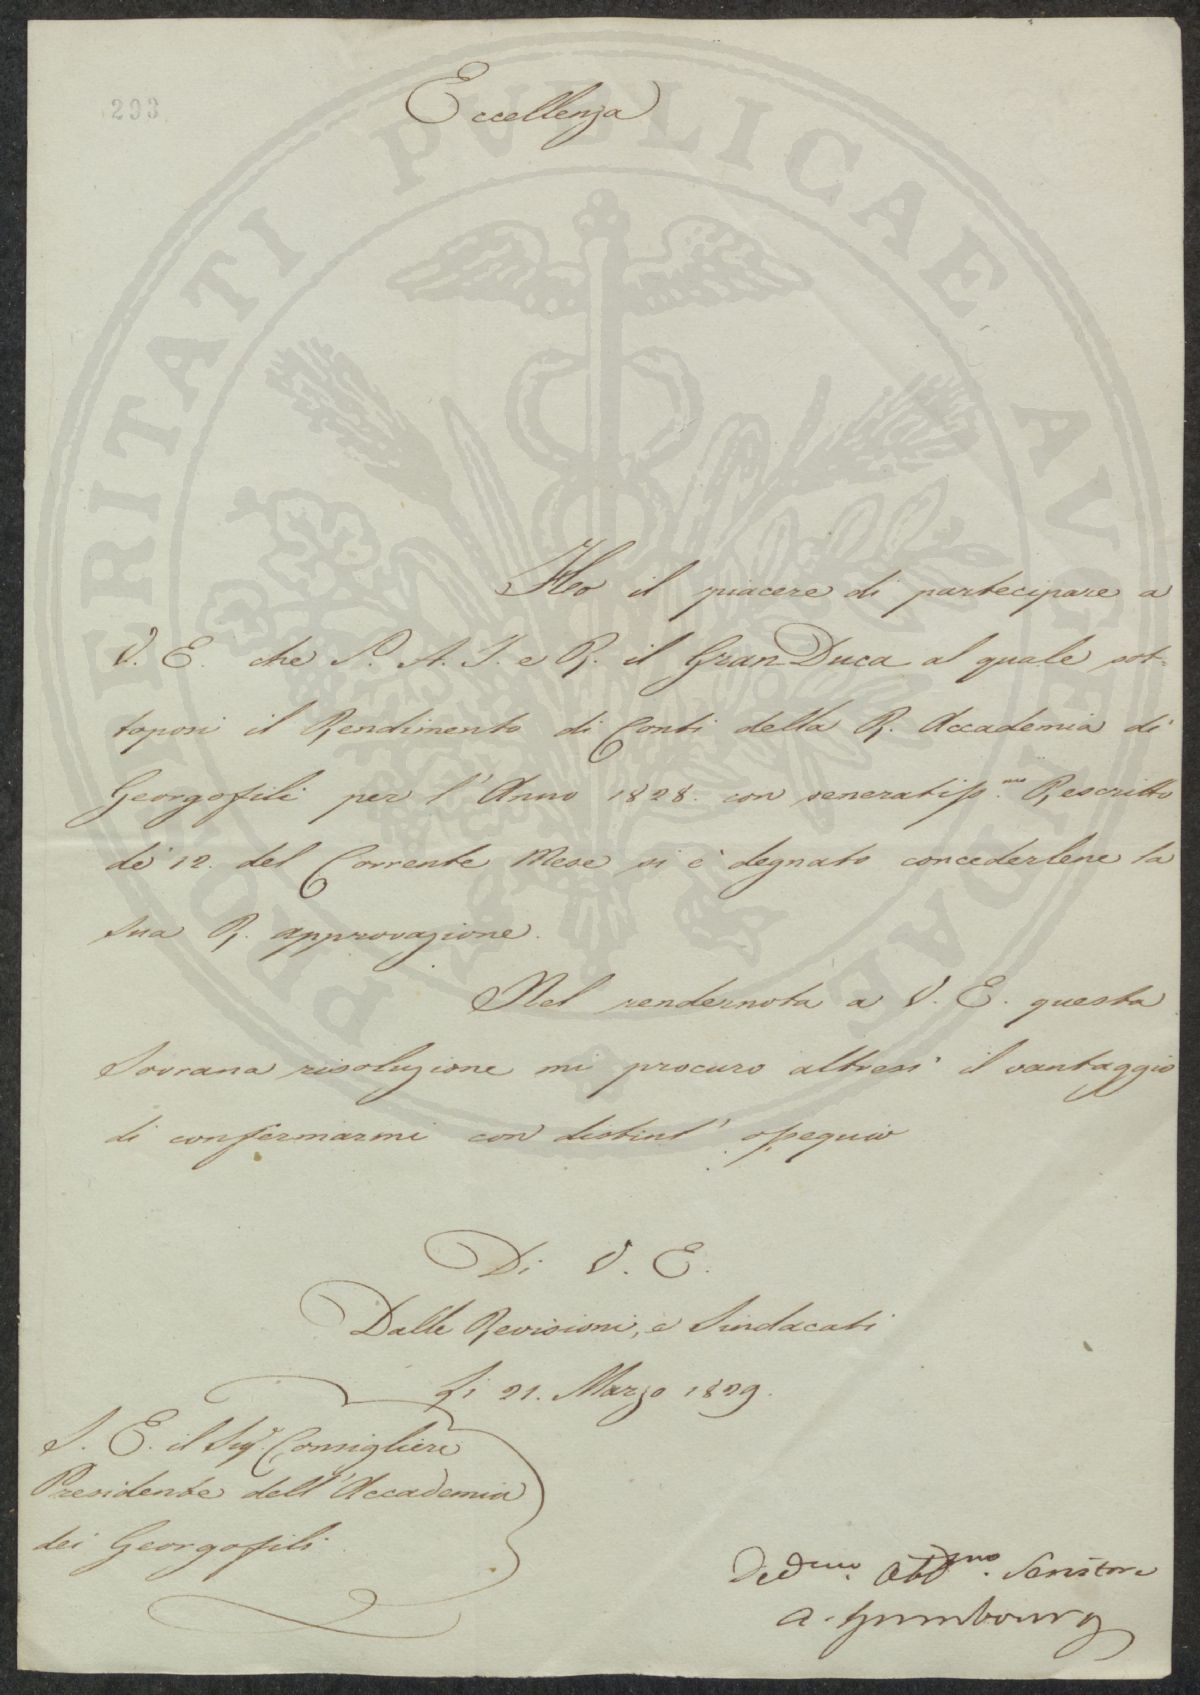 293
Eccellenza
PROSPERITATI PVBLICAE AVGENDAE
Ho il piacere di partecipare a
V. E. che S. A. I. e R. il Gran Duca al quale sot-
toposi il Rendimento di Conti della R. Accademia di
Georgofili per l'Anno 1828. con veneratiss.mo Rescritto
de' 12. del Corrente Mese si è degnato concederlene la
sua R. approvazione.
Nel rendernota a V. E. questa
Sovrana risoluzione mi procuro altresi il vantaggio
di confermarmi con distint' ossequio
Di V. E.
Dalle Revisioni, e Sindacati
Li 21. Marzo 1829.
S. E. il Sig.r Consigliere
Presidente dell'Accademia
dei Georgofili
Devmo. Obbmo. Servitore